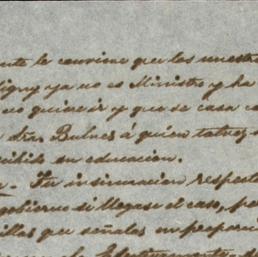 nte le conviene que los nuestro
ligny ya no es Ministro y ha
no quiere ir y que se casa co
Sra. Bulnes á quien talvez
cibido su educacion.
Tu insinuacion respecto
gobierno si llegase el caso, pe
illas que señalas en preparaci